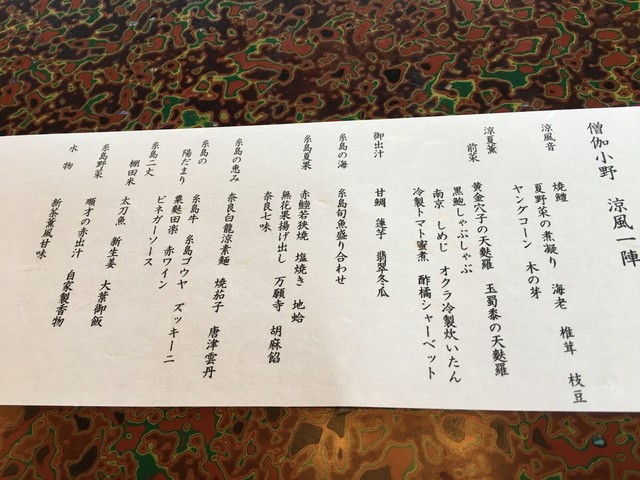 僧伽小野 涼風一陣
涼風音 焼鱧 海老 椎茸 枝豆
夏野菜の煮凝り
ヤングコーン 木の芽
涼夏薫 黄金穴子の天麩羅 玉蜀黍の天麩羅
前菜 黒鮑しゃぶしゃぶ
南京 しめじ オクラ冷製炊いたん
冷製トマト蜜煮 酢橘シャーベット
御出汁 甘鯛 蓮芋 翡翠冬瓜
糸島の海 糸島旬魚盛り合わせ
糸島夏果 赤鯥若狭焼 塩焼き 地蛤
無花果揚げ出し 万願寺 胡麻餡
奈良七味
糸島の恵み 奈良白龍涼素麺 焼茄子 唐津雲丹
糸島の 糸島牛 糸島ゴウヤ ズッキーニ
陽だまり 粟麩田楽 赤ワイン
ビネガーソース
糸島二丈 太刀魚 新生姜 大葉御飯
棚田米
糸島野菜 順才の赤出汁 自家製香物
水物 新茶薫風甘味